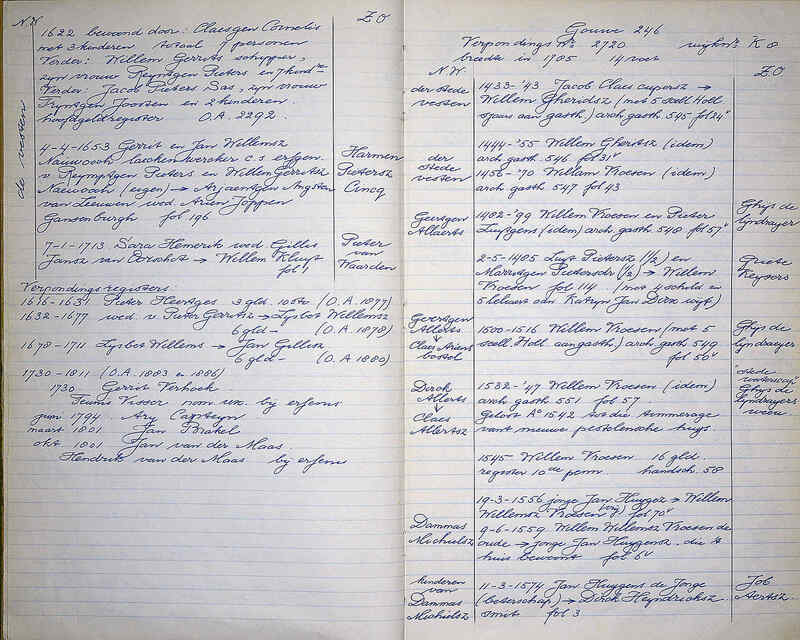 N.W.
Z O
1622 bewoond door: Claesgen Cornelis
met 3 kinderen totaal 7 personen
Verder: Willem Gerrits schipper,
zijn vrouw Reyntgen Pieters en 7 kind
Verder: Jacob Pieters Das, zijn vrouw
Tryntgen Joosten en 2 kinderen.
hoofdgeldregister O.A. 2292.
de vesten
4-4-1653 Gerrit en Jan Willemsz
Nauwoch laeckenwercker c.s. erfgen.
v. Reymptgen Pieters en Willem Gerritsz
Nauwoch (eigen) → Arjaentgen Angsten
van Leeuwen wed. Arien Joppen
Gansenburgh fol 196
Harmen
Pietersz
Cincq
7-1-1713 Sara Hemerik wed Gillis
Jansz van Oorschot → Willem Kluyt
fol 1
Pieter
van
Waarden
Verpondingsregisters:
1616-1631 Pieter Heertges 3 gld. 10 st (O.A. 1877)
1632-1677 wed v. Pieter Gerritsz → Lysbet Willemsz
6 gld - (O.A. 1878)
1678-1711 Lysbet Willems → Jan Gillisz
6 gld - (O.A. 1880)
1730-1811 (O.A. 1883 en 1886)
1730 Gerrit Verhoek
Teunis Visser nom. ux. bij erfenis
juni 1794 Ary Capteyn
maart 1801 Jan Brakel
okt 1801 Jan van der Maas
Hendrik van der Maas bij erfenis
Gouwe 246
Verpondings No. 2720 wijkn. K 8
breedte in 1785 14 voet
N.W.
Z O
der Stede
vesten
1433-'43 Jacob Claes cupersz →
Willem Gheridsz (met 5 scell Holl
tsjaers aan gasth.) arch. gasth. 545 fol 24
der
Stede
vesten
1444-'55 Willem Gheritsz (idem)
arch gasth 546 fol 31
1456-'70 Willam Vroesen (idem)
arch gasth 547 fol 43
Geertgen
Allaerts
1482-'99 Willem Vroesen en Pieter
Luytgens (idem) arch. gasth. 548 fol 57
Ghys de
lyndrayer
2-5-1485 Luyt Pietersz (1/2) en
Marritgen Pietersdr (1/2) → Willem
Vroesen fol 114 (met 4 schilden
5 leleaert aan Katryn Jan Dirx wijf)
Griete
Keysers
Geertgen
Allerts
↓
Claes Ariens
bossel
1500-1516 Willem Vroesen (met 5
scell. Holl aan gasth.) arch gasth 549
fol 50
Ghys de
lyndraeyer
Dirck
Allerts
↓
Claes
Allertsz
1532-'47 Willem Vroesen (idem)
arch gasth 551 fol 57.
Geloot Ao 1542 tot die timmerage
vant nieuwe pestelensche huys.
"stede
Ghys de
lyndrayers
weeu.
1545 Willem Vroesen 16 gld.
register 10de penn. handsch. 58
Dammas
Michielsz
19-3-1556 jonge Jan Huygez → Willem
Willemsz Vroesen fol 70
9-6-1559 Willem Willemsz Vroesen de
oude → jonge Jan Huygensz. die 't
huis bewoont fol. 6
kinderen
van
Dammas
Michielsz
11-3-1574 Jan Huygens de Jonge
(beterschap) → Dirck Heyndricksz
smit fol 3
Job
Aertsz